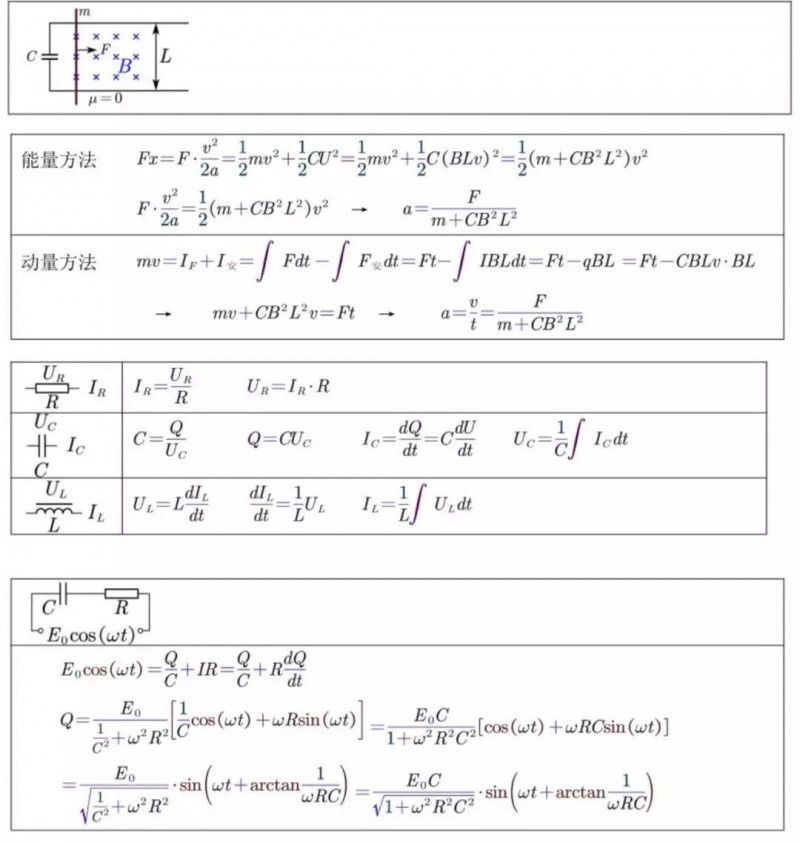 m
C F B L
μ=0
能量方法 Fx=F·v²/2a=1/2mv²+1/2CU²=1/2mv²+1/2C(BLv)²=1/2(m+CB²L²)v²
F·v²/2a=1/2(m+CB²L²)v² → a=F/(m+CB²L²)
动量方法 mv=I_F+I_安=∫Fdt-∫F_安dt=Ft-∫IBLdt=Ft-qBL=Ft-CBLv·BL
→ mv+CB²L²v=Ft → a=v/t=F/(m+CB²L²)
U_R R I_R I_R=U_R/R U_R=I_R·R
U_C C I_C C=Q/U_C Q=CU_C I_C=dQ/dt=C dU/dt U_C=1/C∫I_Cdt
U_L L I_L U_L=L dI_L/dt dI_L/dt=1/L U_L I_L=1/L∫U_Ldt
C R
E₀cos(ωt)
E₀cos(ωt)=Q/C+IR=Q/C+R dQ/dt
Q=E₀/(1/C²+ω²R²)[1/C cos(ωt)+ωRsin(ωt)]=E₀C/(1+ω²R²C²)[cos(ωt)+ωRCsin(ωt)]
=E₀/√(1/C²+ω²R²)·sin(ωt+arctan 1/ωRC)=E₀C/√(1+ω²R²C²)·sin(ωt+arctan 1/ωRC)